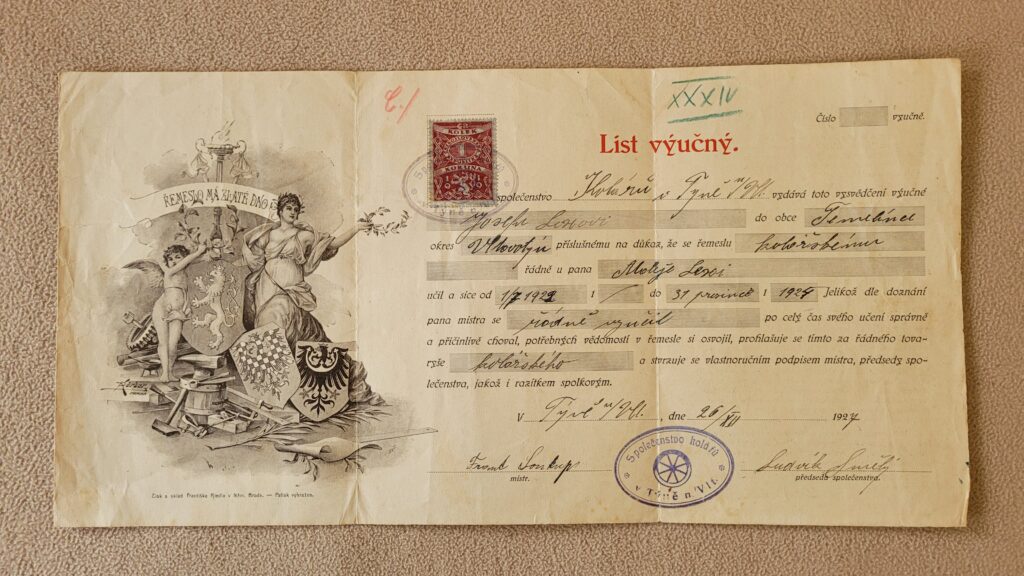 XXXIV
Číslo výučné.
List výučný.
ŘEMESLO MÁ ZLATÉ DNO
KOLEK
1
KORUNA
společenstvo Kolářů v Týně n/Vlt. vydává toto vysvědčení výučné
Josefu Lexovi do obce Temelince
okres Vltavotýn příslušnému na důkaz, že se řemeslu kolářskému
řádně u pana Matěje Lexi
učil a sice od 1/7 192 1 do 31 prosince 1 192 Jelikož dle doznání
pana mistra se řádně vyučil po celý čas svého učení správně
a příčinlivě choval, potřebných vědomostí v řemesle si osvojil, prohlašuje se tímto za řádného tova-
ryše kolářského a stvrzuje se vlastnoručním podpisem mistra, předsedy spo-
lečenstva, jakož i razítkem spolkovým.
V Týně n/Vlt. , dne 26/XII 1927
Frant Soukup
mistr.
Společenstvo kolářů
v Týně n/Vlt.
Ludvík
předseda společenstva.
Tisk a sklad Františka v Něm. Brodě. — Patisk vyhrazen.